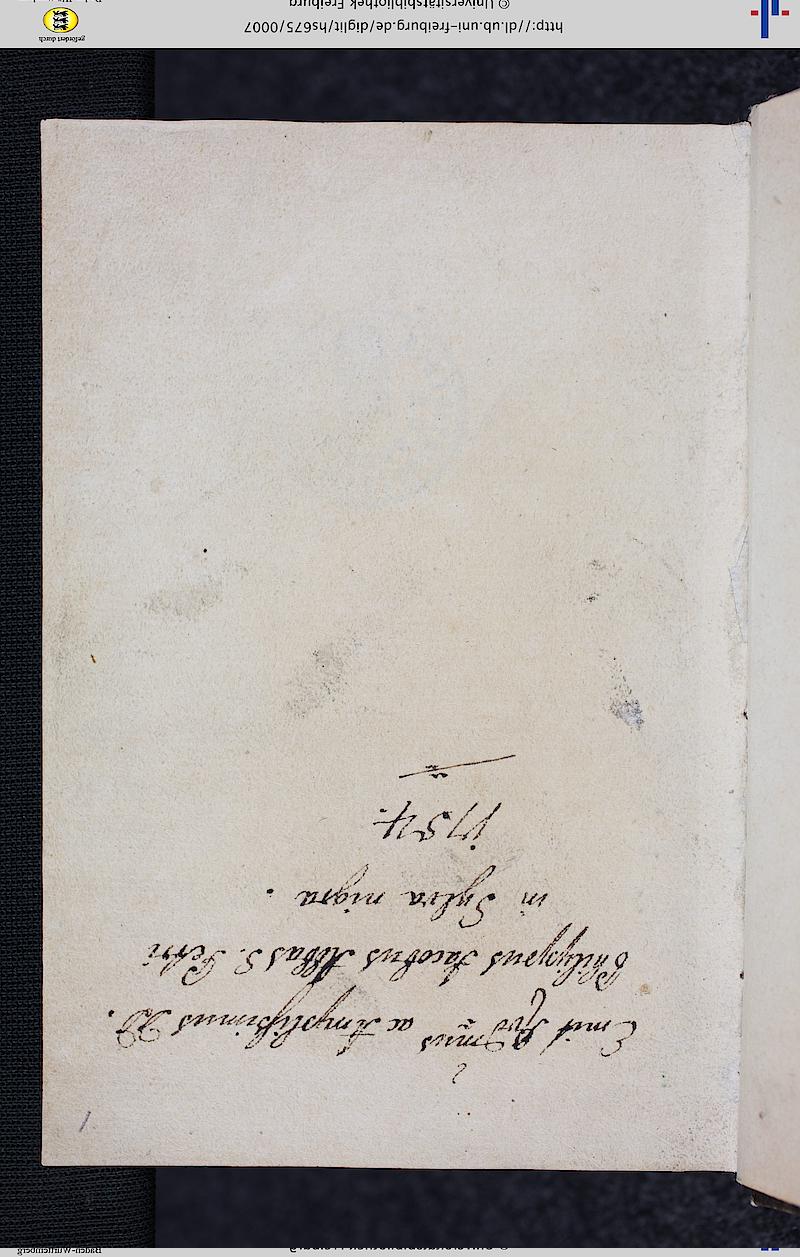 Emit Rvd͠mus ac Amplissimus DD.
Philippus Jacobus Abbas S. Petri
in Sylva nigra.
1754.
1
http://dl.ub.uni-freiburg.de/diglit/hs675/0007
© Universitätsbibliothek Freiburg
gefördert durch
Baden-Württemberg